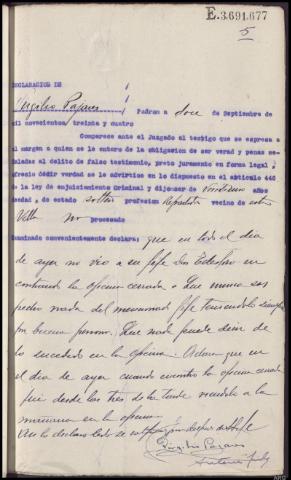 E.3.691.677
5
DECLARACION DE
Virgilio Pazares
Padron a doce de Septiembre de
mil novecientos treinta y cuatro
Comparece ante el Juzgado al testigo que se expresa
al margen a quien se le entero de la obligacion de ser verad y penas se-
ñaladas al delito de falso testimonio, presto juramento en forma legal,
ofrecio dédir verdad se le advirtio de lo dispuesto en el articulo 446
de la ley de enjuiciamiento Criminal y dijo ser de años
deedad, de estado soltero profesion vecino de esta
Villa no procesado
Examinado convenientemente declara: que en todo el dia
de ayer no vio a su Jefe Don
continuando la oficina cerrada. Que nunca sos
pecho nada del mencionado Jefe teniendolo siempre
por buena persona. Que nada puede decir de
lo sucedido en la oficina. Aclara que en
el dia de ayer cuando encontro la oficina cerrada
fué desde las tres de la tarde
mañana en la oficina.
Asi lo declara leido se
Virgilio Pazares